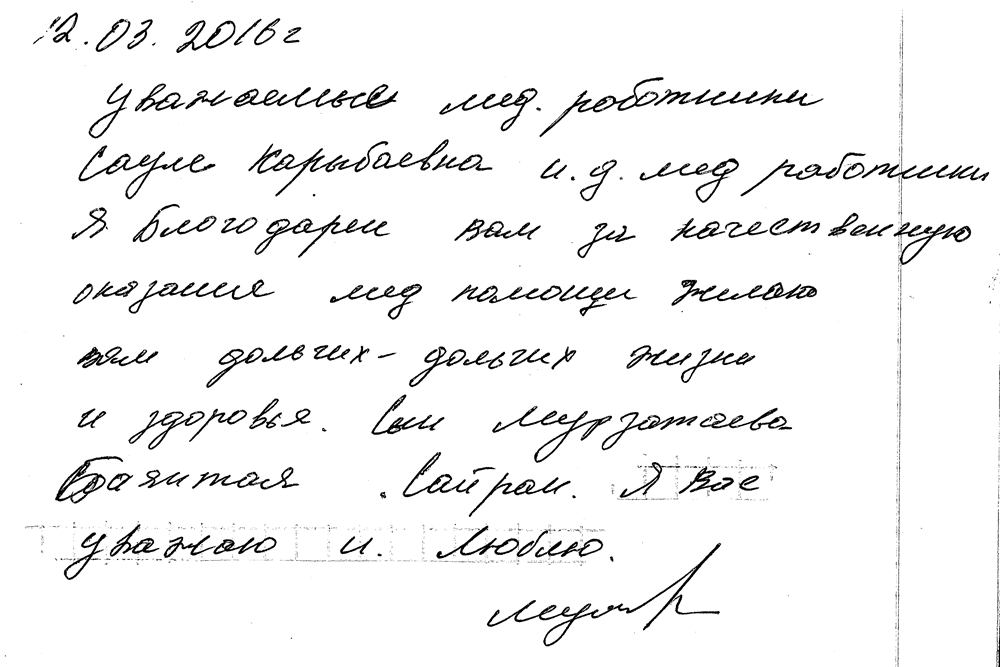 12.03.2016 г
Уважаемые мед. работники
Сауле Карыбаевна и.д. мед работники
Я Благодарен вам за качественную
оказания мед помощи желаю
вам дольгих-дольгих жизни
и здоровья. Сын Мурзатаева
Сайран. Я Вас
уважаю и. Люблю.